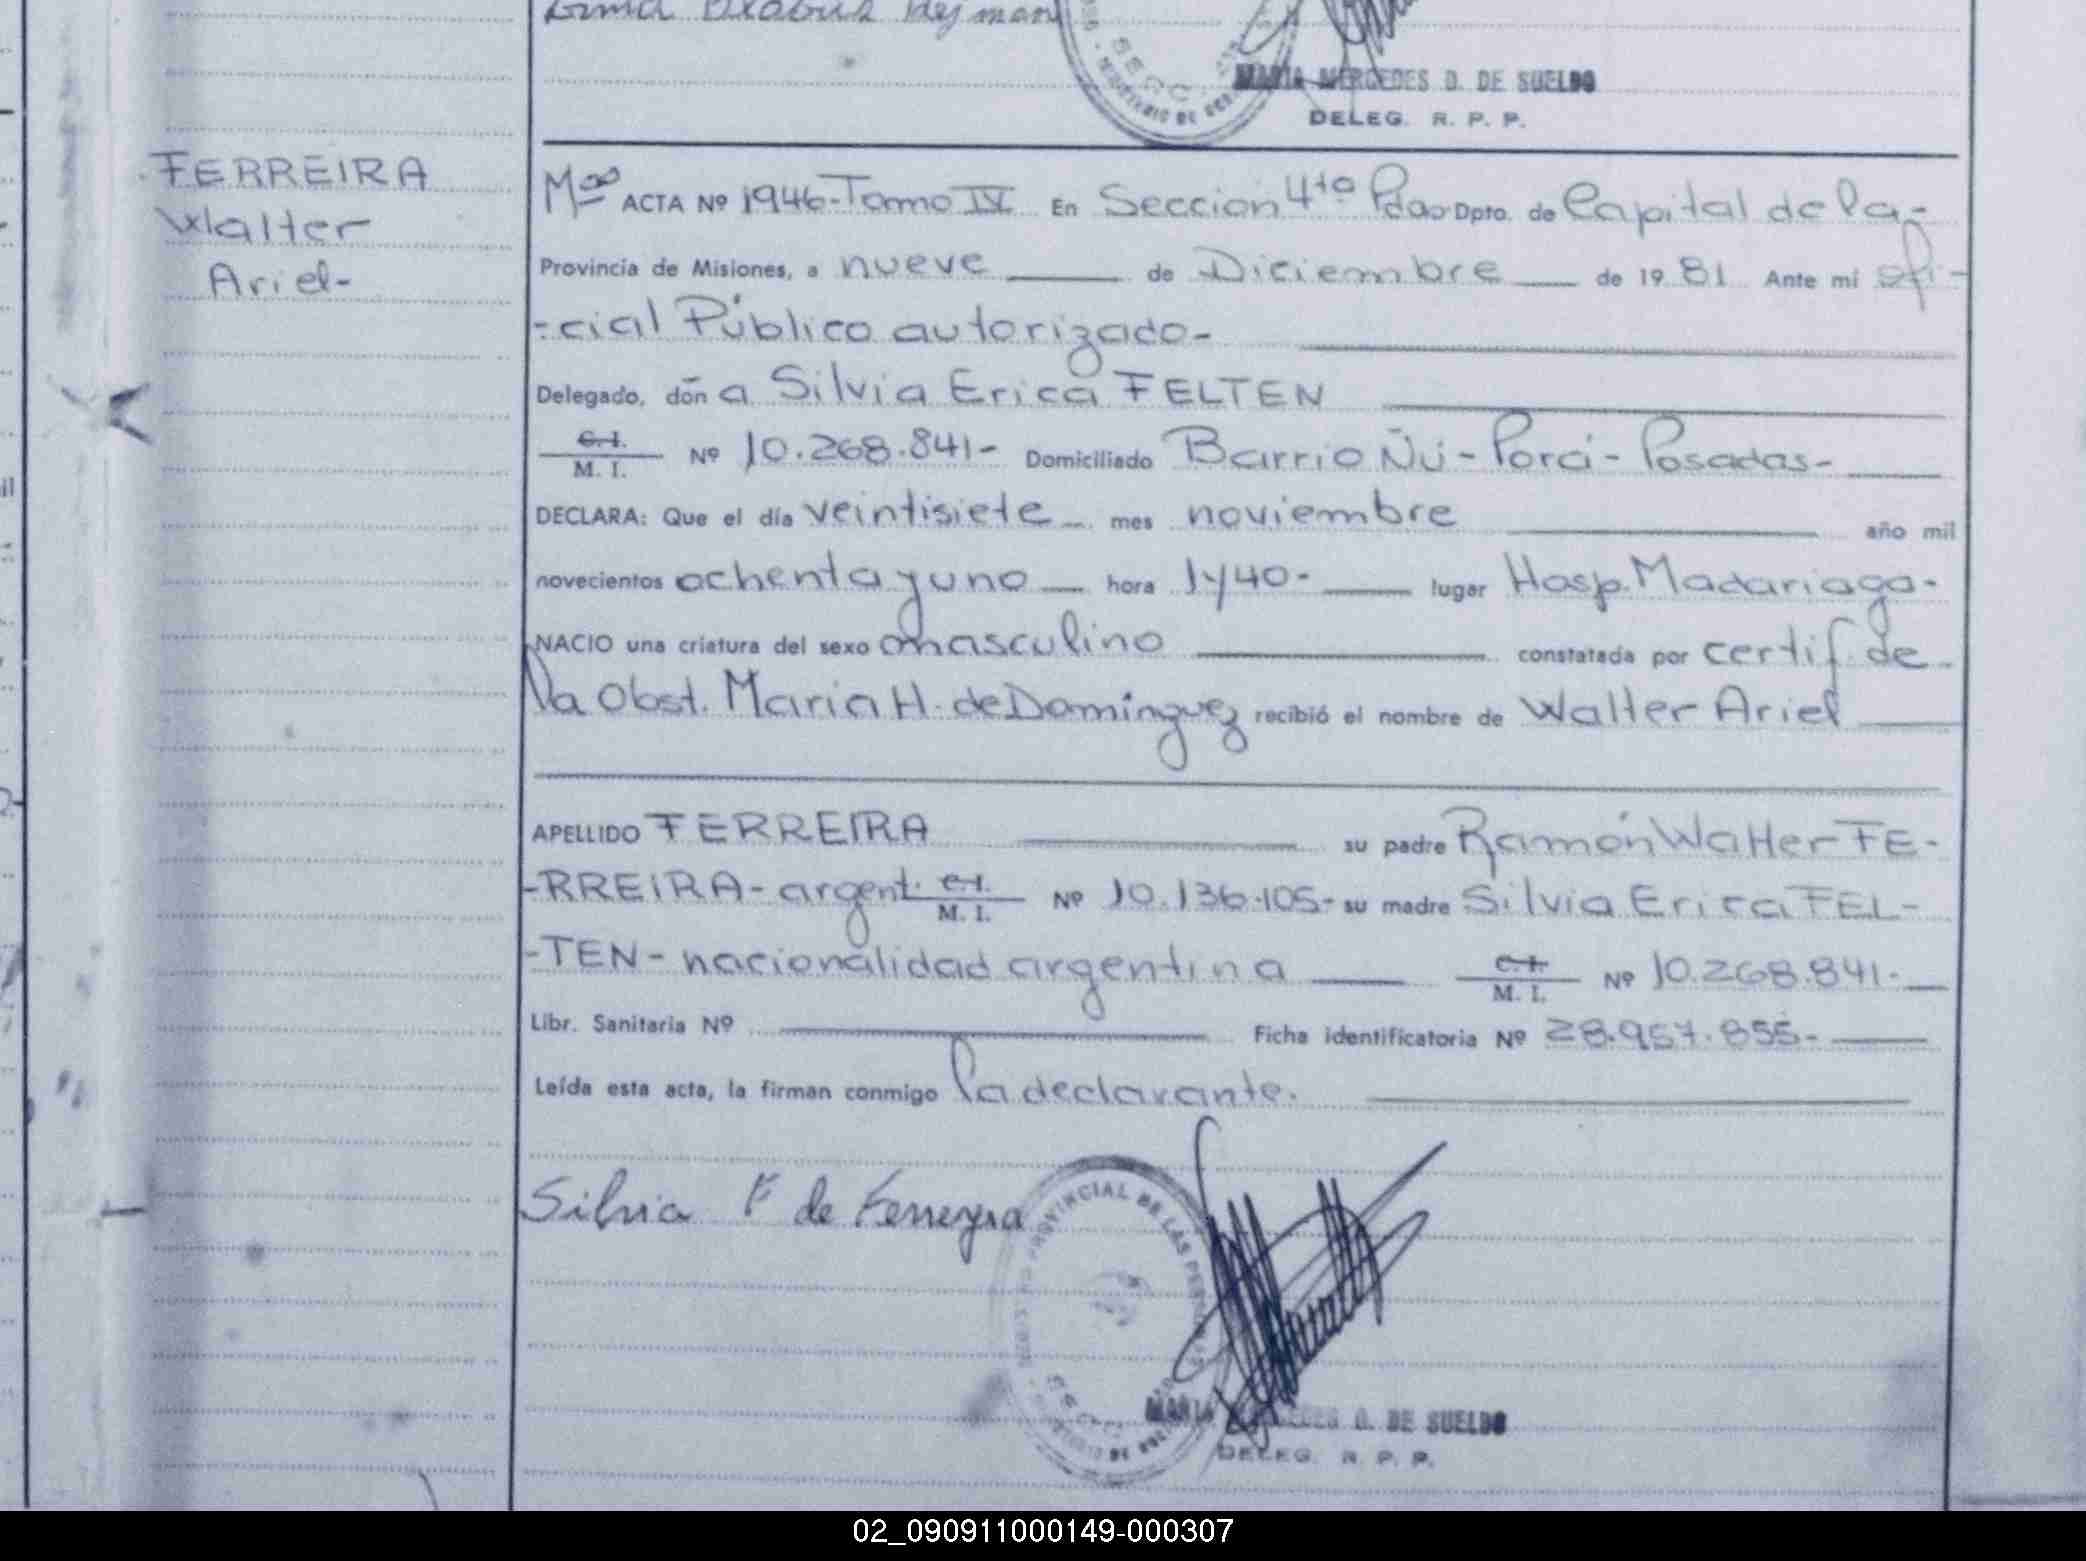 MARIA MERCEDES D. DE SUELDO
DELEG. R. P. P.
FERREIRA
Walter
Ariel-
ACTA Nº 1946-Tomo IV En Sección 4ta Pdas Dpto. de Capital de la-
Provincia de Misiones, a nueve de Diciembre de 1981 Ante mí ofi-
-cial Público autorizado-
Delegado, doña Silvia Erica FELTEN
C.I. M. I. Nº 10.268.841- Domiciliado Barrio Ñu-Porá-Posadas-
DECLARA: Que el día veintisiete mes noviembre año mil
novecientos ochenta y uno hora 1y40- lugar Hosp. Madariaga-
NACIO una criatura del sexo masculino constatada por certif. de
la Obst. Maria H. de Dominguez recibió el nombre de Walter Ariel
APELLIDO FERREIRA su padre Ramón Walter FE-
-RREIRA-argent. C.I. M. I. Nº 10.136.105- su madre Silvia Erica FEL-
-TEN-nacionalidad argentina C.I. M. I. Nº 10.268.841-
Libr. Sanitaria Nº Ficha identificatoria Nº 28.957.855-
Leída esta acta, la firman conmigo la declarante.
Silvia F de Ferreyra
PROVINCIAL DE LAS PERSONAS
MARIA MERCEDES D. DE SUELDO
DELEG. R. P. P.
02_090911000149-000307